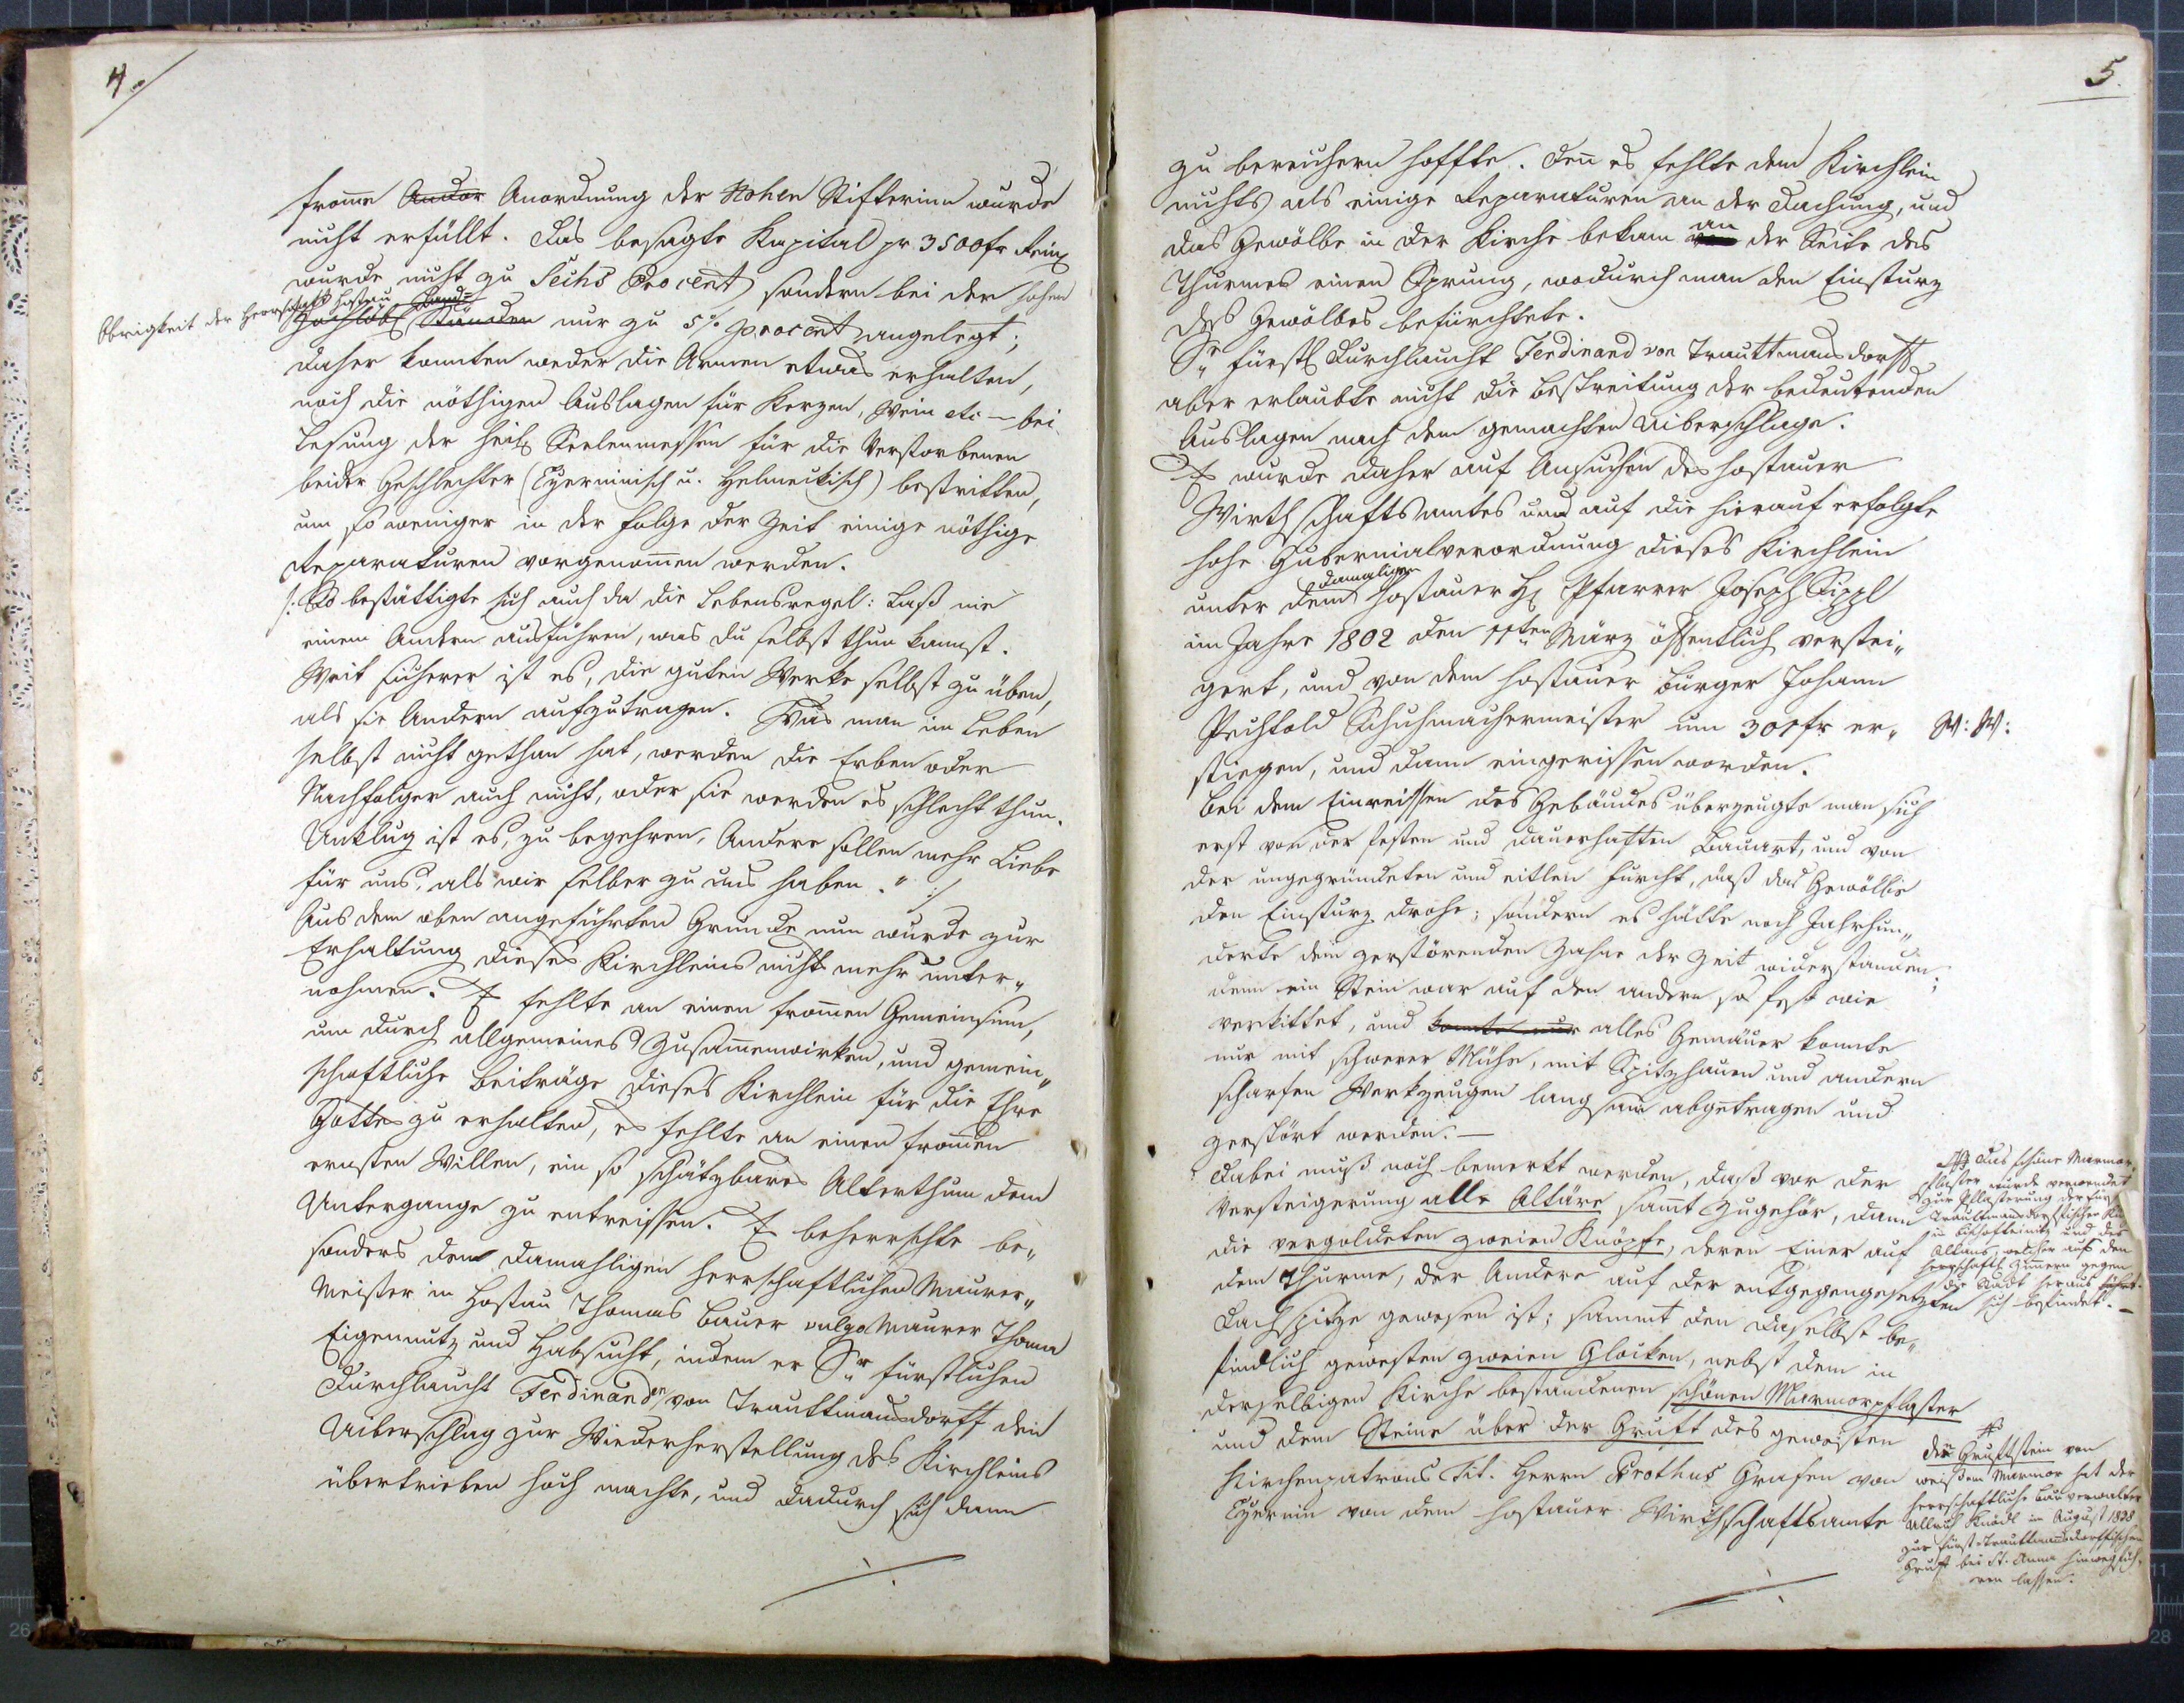 4.
from̅e Andor Anordnung der Hohen Stifterinn wurde
nicht erfüllt. Das besagte Kapital pr 3500 fr Rein
wurde nicht zu Sechs Procent sondern bei der hohen
Obrigkeit der Herrschaft Hostau Land=
Hochlöbl Ständen nur zu 5% Procent angelegt;
daher konnten weder die Armen etwas erhalten,
noch die nöthigen Auslagen für Kerzen, Wein etc – bei
Lesung der heil Seelenmessen für die Verstorbenen
beider Geschlechter (Czerninisch u. Helmeckisch) bestritten,
um so weniger in der Folge der Zeit einige nöthige
Reparaturen vorgenom̅en werden.
/: So bestättigte sich auch da die Lebensregel: Laß nie
einem Andern ausführen, was du selbst thun kannst.
Weit sicherer ist es, die guten Werke selbst zu üben,
als sie Andern aufzutragen. Was man im Leben
selbst nicht gethan hat, werden die Erben oder
Nachfolger auch nicht, oder sie werden es schlecht thun.
Unklug ist es, zu begehren, Andere sollen mehr Liebe
für uns, als wir selber zu uns haben." :/
Aus dem oben angeführten Grunde nun wurde zur
Erhaltung dieses Kirchleins nichts mehr unter„
nohmen. Es fehlte an einen from̅en Gemeinsinn,
um durch allgemeines Zusam̅enwirken, und gemein„
schaftliche Beiträge dieses Kirchlein für die Ehre
Gottes zu erhalten, es fehlte an einen from̅en
ernsten Willen, ein so schätzbares Alterthum dem
Untergange zu entreissen. Es beherrschte be„
sonders den damahligen herrschaftlichen Maurer„
Meister in Hostau Thomas Bauer vulgo Maurer Thoma
Eigennutz und Habsucht, indem er Sr fürstlichen
Durchlaucht Ferdinanden von Trauttmansdorff den
Uiberschlag zur Wiederherstellung des Kirchleins
übertrieben hoch machte, und dadurch sich dann
5.
zu bereichern hoffte. Den̅ es fehlte dem Kirchlein
nichts als einige Reparaturen an der Dachung, und
das Gewölbe in der Kirche bekam an der Seite des
Thurmes einen Sprung, wodurch man den Einsturz
des Gewölbes befürchtete.
Sr fürstl Durchlaucht Ferdinand von Trauttmansdorff
aber erlaubte nicht die Bestreitung der bedeutenden
Auslagen nach dem gemachten Uiberschlage.
Es wurde daher auf Ansuchen des Hostauer
Wirthschaftsamtes und auf die hierauf erfolgte
hohe Gubernialverordnung dieses Kirchlein
unter dem damaligen Hostauer H Pfarrer Joseph Sippl
im Jahre 1802 den 11ten März öffentlich verstei„
gert, und von dem Hostauer Bürger Johann
Pechtold Schuhmachermeister um 301 fr er„ W: W:
stiegen, und dann eingerissen worden.
Bei dem Einreissen des Gebäudes überzeugte man sich
erst von der festen und dauerhaften Bauart, und von
der ungegründeten und eitlen Furcht, daß das Gewölbe
den Einsturz drohe; sondern es hätte noch Jahrhun„
derte dem zerstörenden Zahne der Zeit widerstanden;
denn ein Stein war auf den andern so fest wie
verkittet, und konnte nur alles Gemäuer konnte
nur mit schwerer Mühe, mit Spitzhauen und andern
scharfen Werkzeugen langsam abgetragen und
zerstört werden. –
Dabei muß noch bemerkt werden, daß vor der
Versteigerung alle Altäre sam̅t Zugehör, dann
die vergoldeten zweien Knöpfe, deren Einer auf
dem Thurme, der Andere auf der entgegengesetzten
Dachspitze gewesen ist; sammt den daselbst be„
findlich gewesten zweien Glocken, nebst dem in
derselbigen Kirche bestandenen schönen Marmorpflaster
und dem Steine über der Gruft des gewesten
Kirchenpatrons Tit. Herrn Prothus Grafen von
Czernin von dem Hostauer Wirthschaftsamte
Das schöne Marmor„
pflaster wurde verwendet
zur Pflasterung der fürst
Trauttmansdorffischen
in Bischofteinitz und des
Altans, welcher aus den
herrschaftl Zim̅ern gegen
die Stadt heraus führt
sich befindet. –
Den Gruftstein von
weißem Marmor hat der
herrschaftliche Bauverwalter
Knödl im August 1828
zur fürst Trauttmansdorffischen
Gruft bei St. Anna hinwegfüh„
ren lassen.